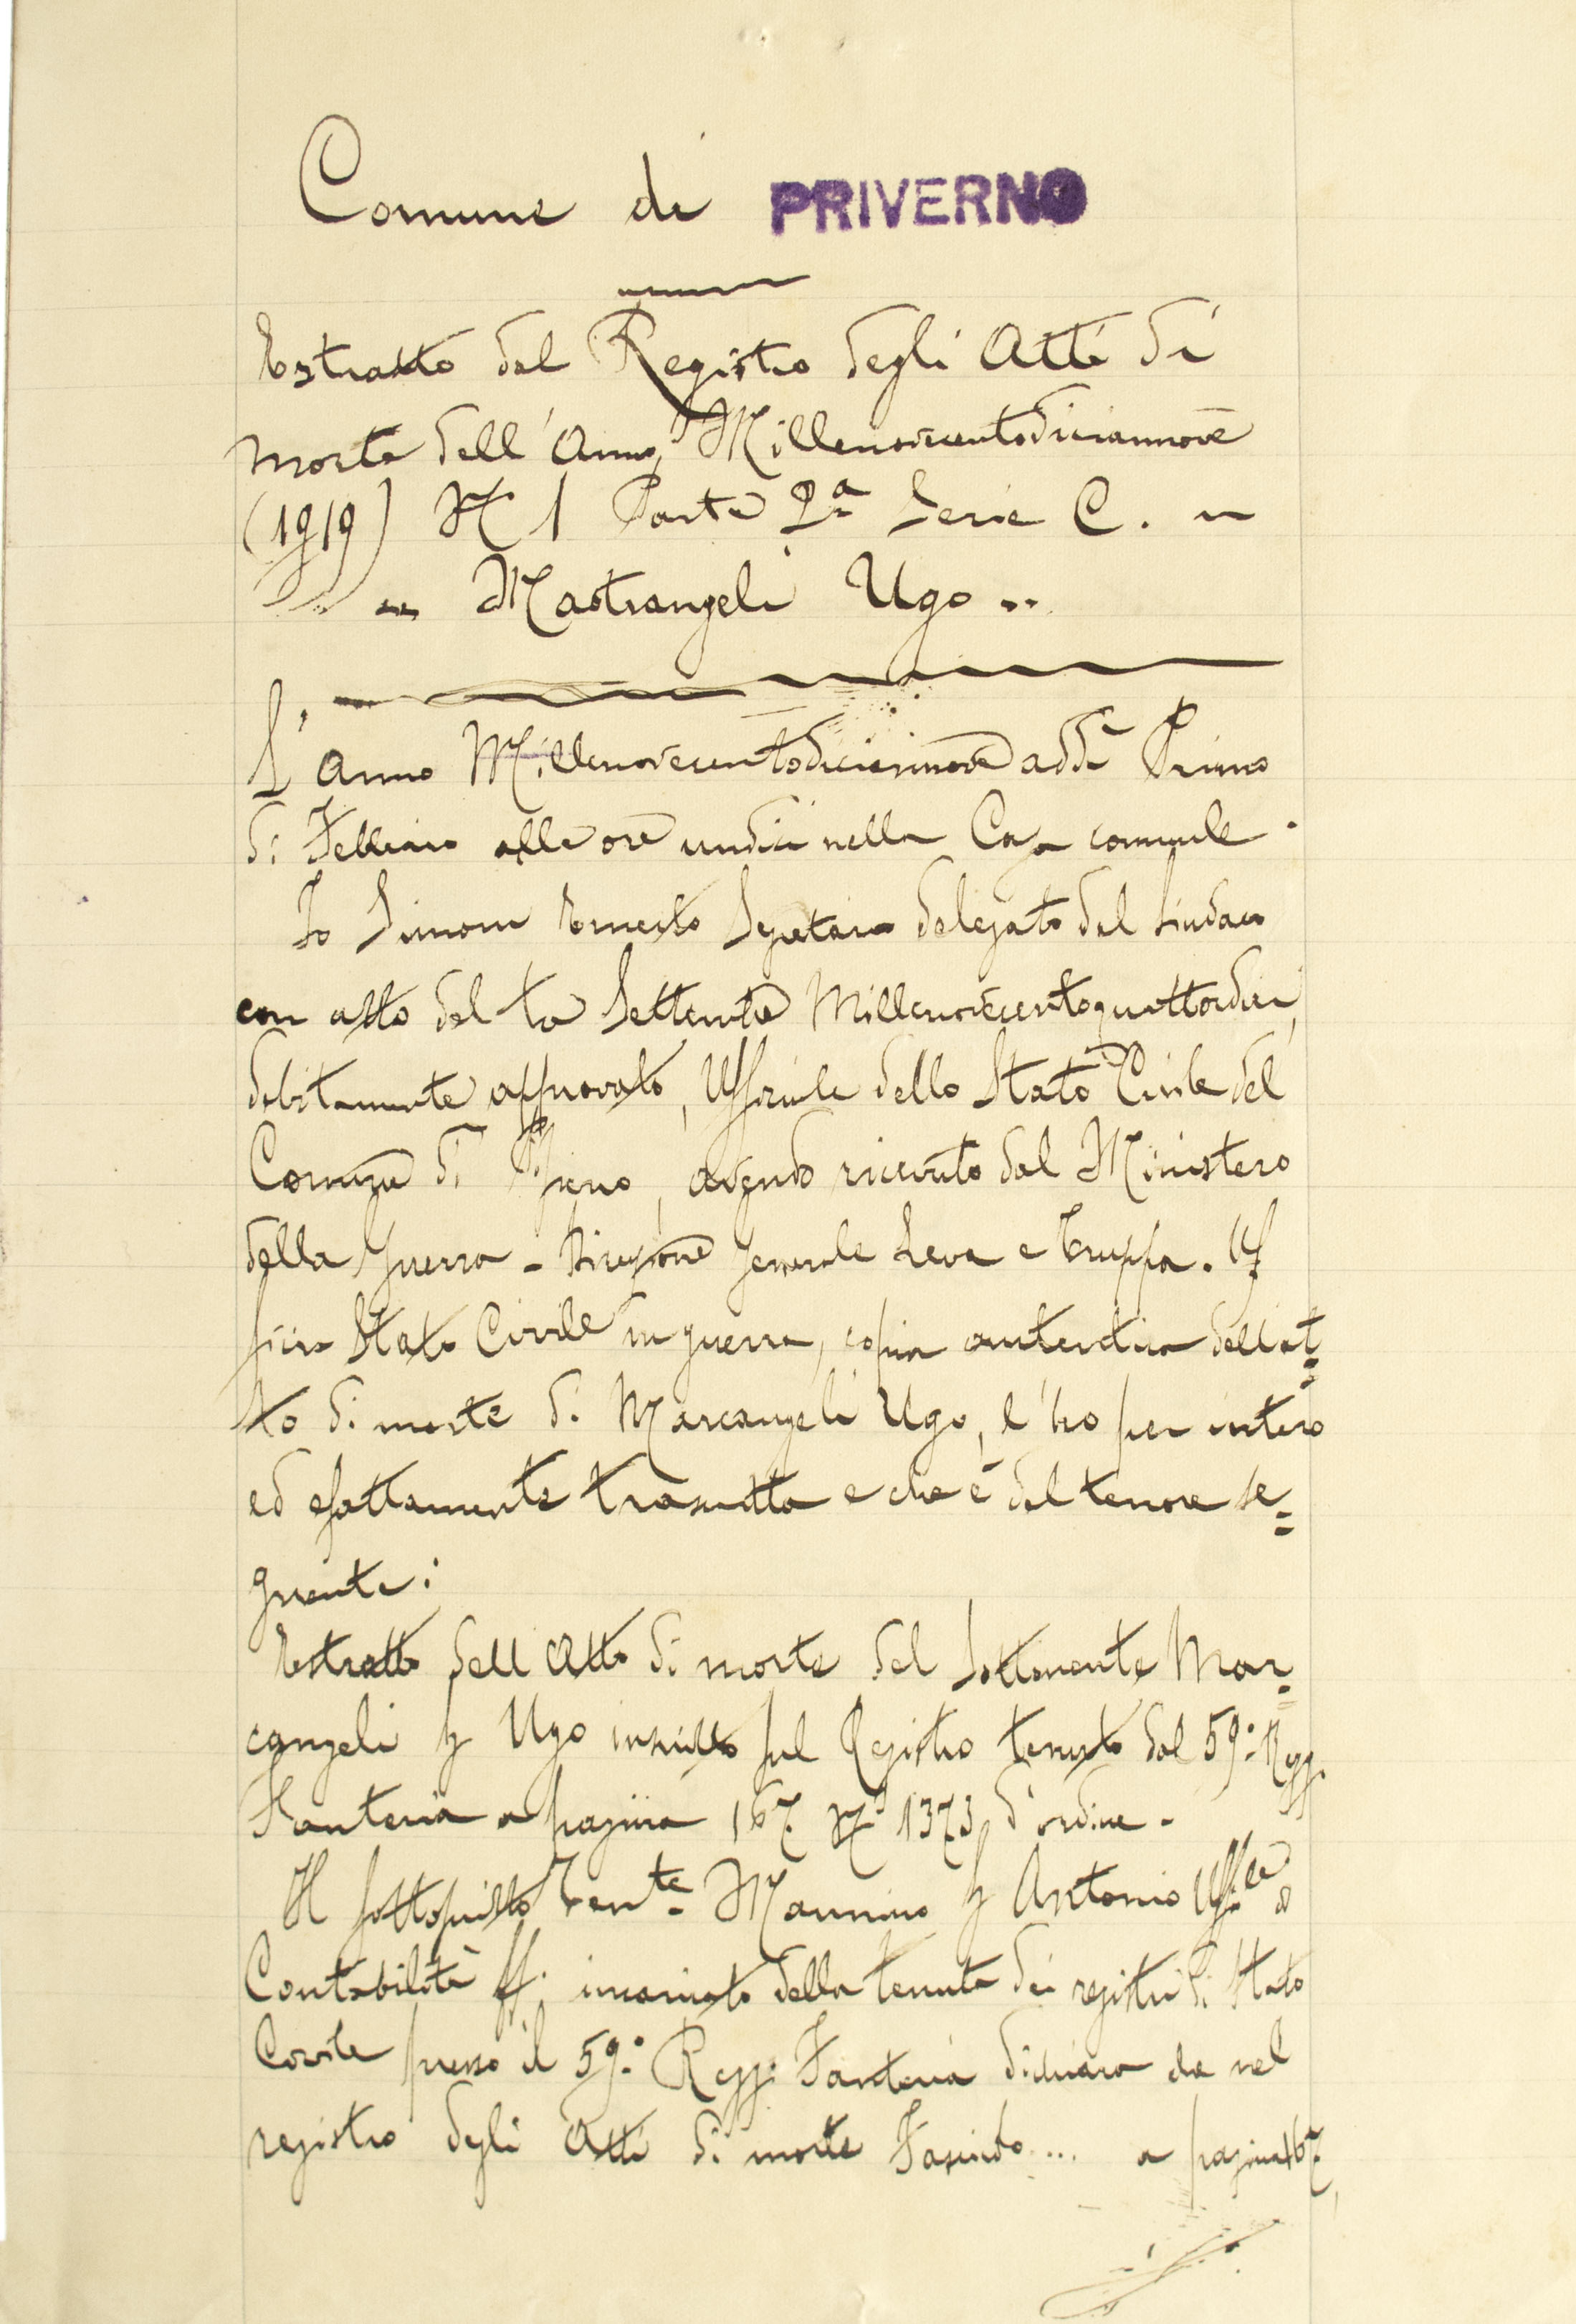 Comune di PRIVERNO
Estratto dal Registro degli Atti di
morte dell'Anno Millenovecentodiciannove
(1919) N 1 Parte 2ª Serie C.
Mastrangeli Ugo
L'anno Millenovecentodiciannove addì Primo
di Febbraio alle ore undici nella Casa comunale.
Io Simoni Ernesto Segretario delegato dal Sindaco
con atto del tre Settembre Millenovecentoquattordici,
debitamente approvato, Ufficiale dello Stato Civile del
Comune di, avendo ricevuto dal Ministero
della Guerra - Direzione Generale Leva e Truppa. Uf
ficio Stato Civile in guerra, copia autentica dell'at=
to di morte di Marcangeli Ugo, l'ho per intero
ed esattamente trascritta e che è del tenore se=
guente:
Estratto dell'Atto di morte del Sottotenente Mar=
cangeli Ugo inscritto sul Registro tenuto dal 59º Regg.
Fanteria a pagina 167 Nº 1373 d'ordine -
Il sottoscritto Tente Mannino Antonio
Contabilità ff. incaricato della tenuta dei registri di Stato
Civile presso il 59º Regg. Fanteria dichiara che nel
registro degli Atti di morte Fascicolo ... a pagina 167,